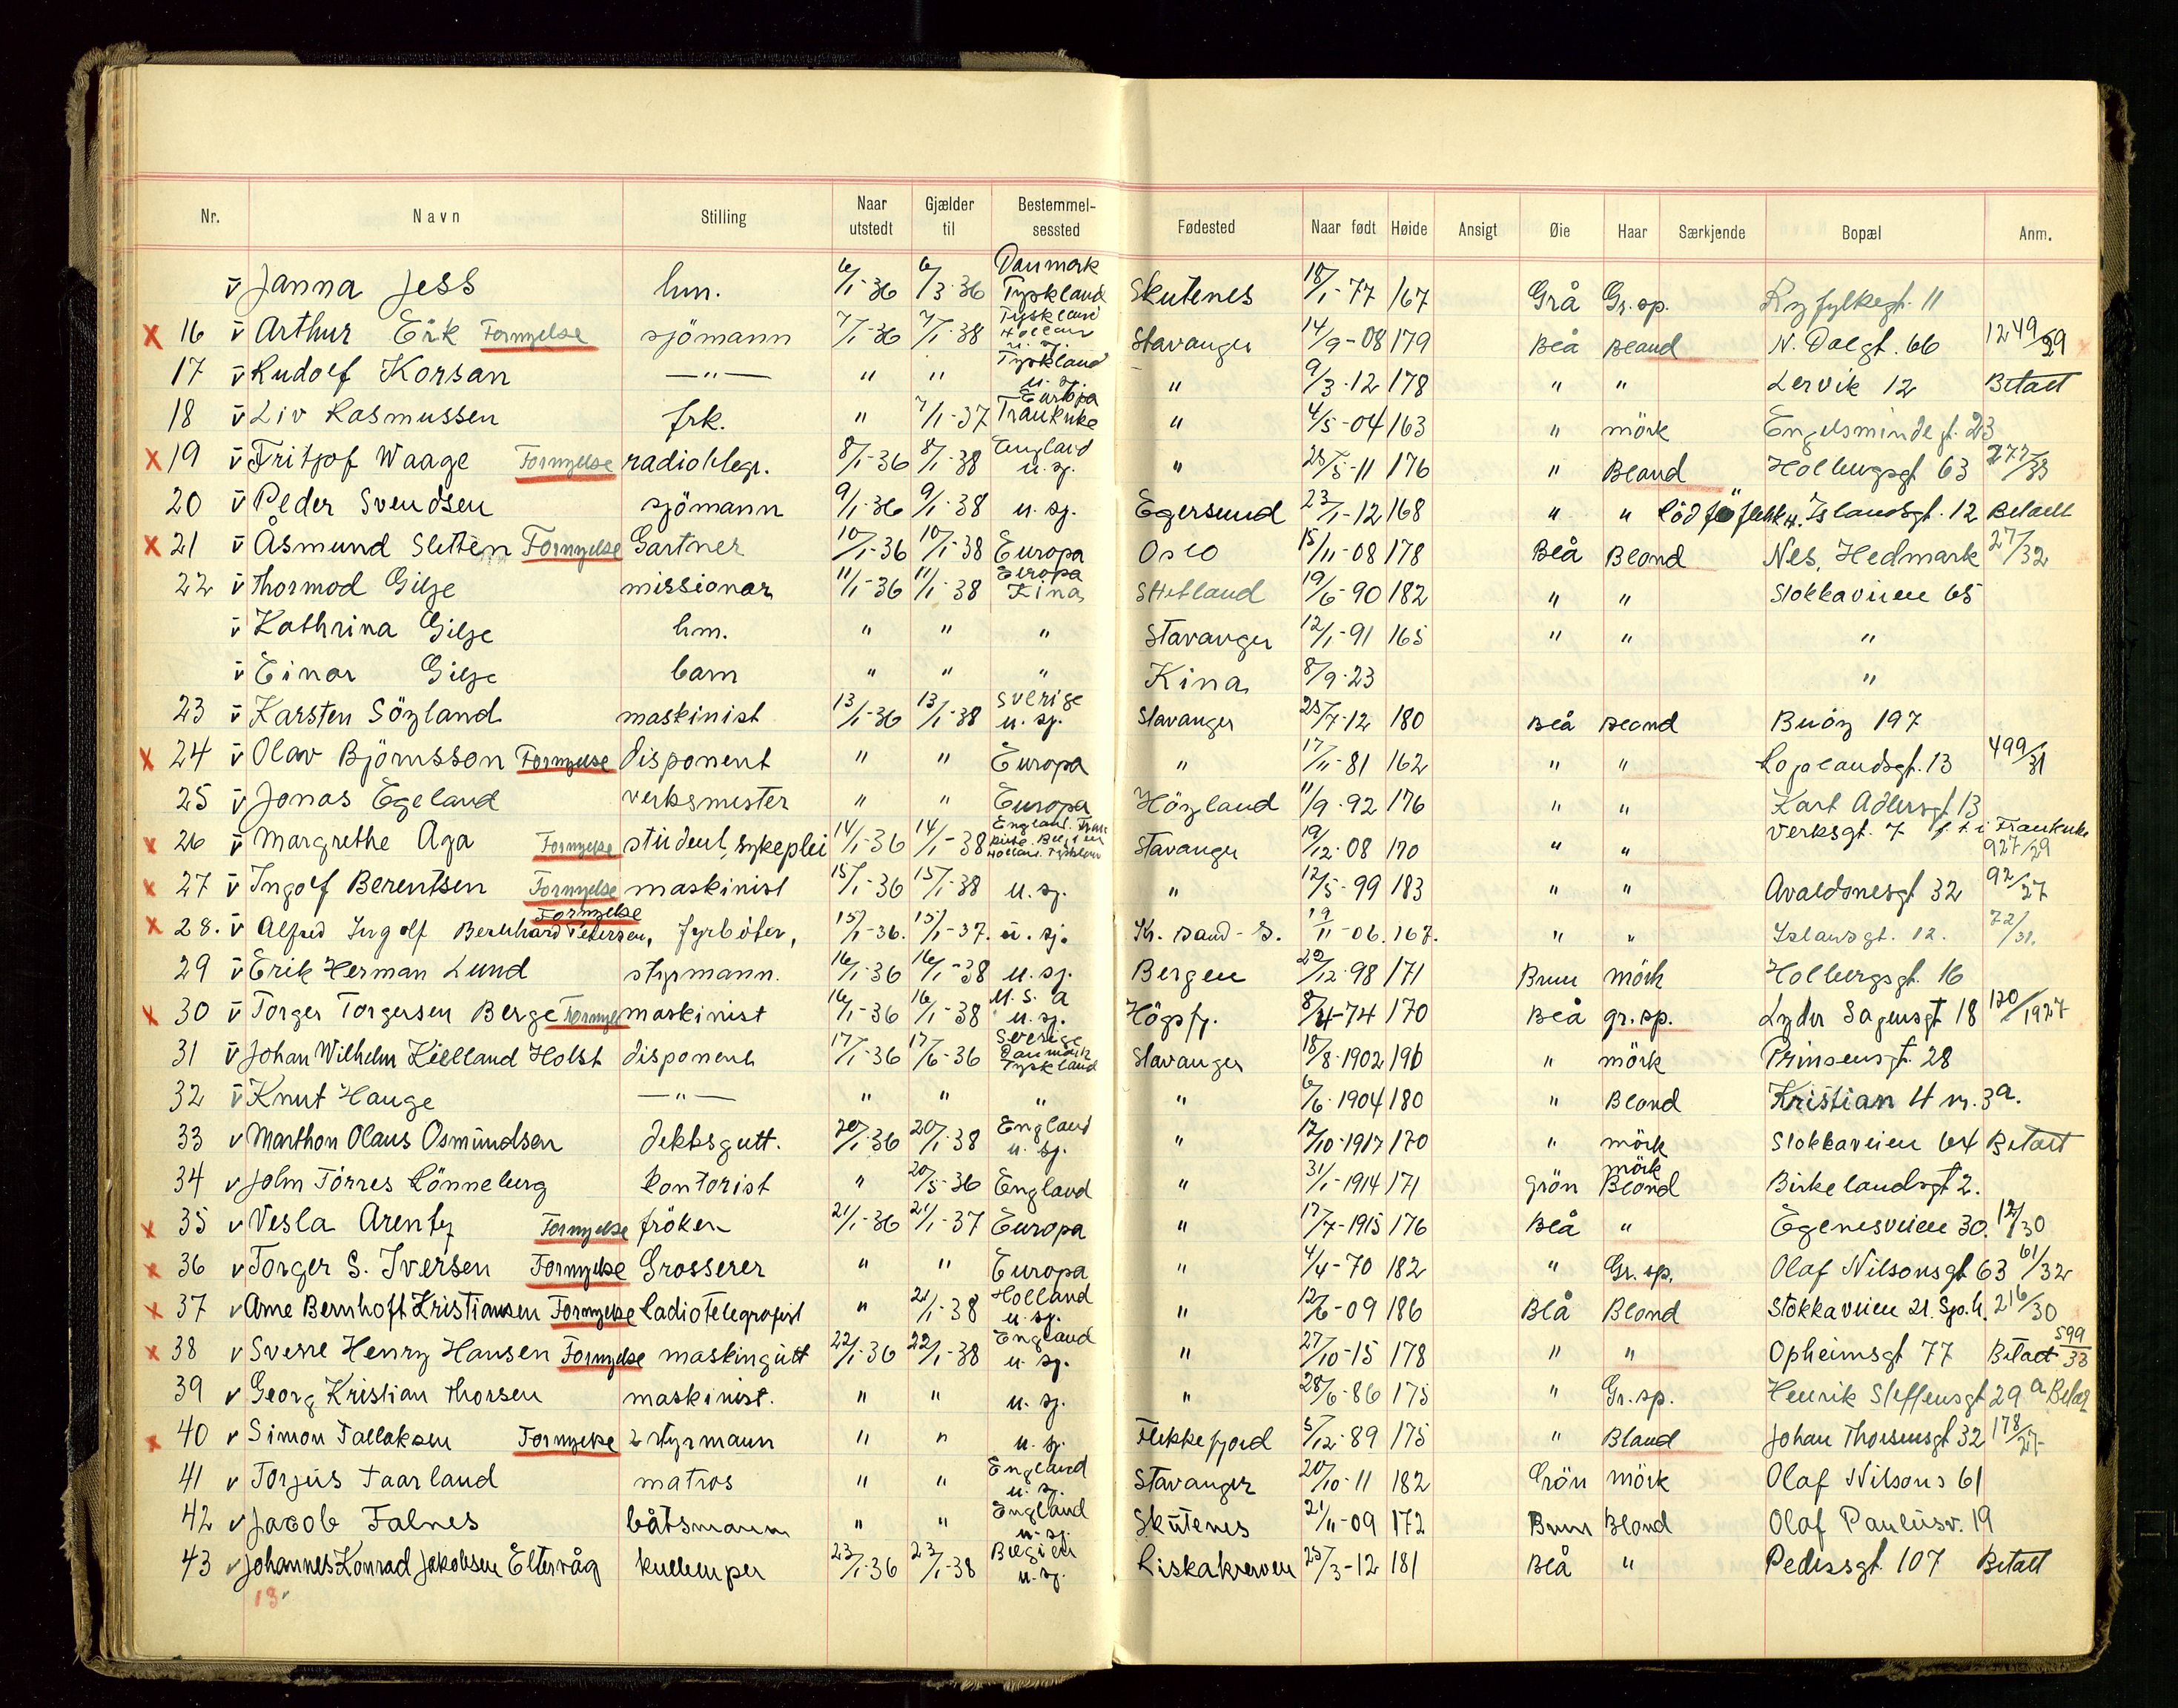 Nr. Navn Stilling Naar utstedt Gjælder til Bestemmelsessted Fødested Naar født Høide Ansigt Øie Haar Særkjende Bopæl Anm.
v Janna Jess hm. 6/1-36 6/3-36 Danmark Tyskland Skutenes 18/1-77 167 Grå Gr.sp. Ryfylkegt. 11
x 16 v Arthur Erk Fornyelse sjömann 7/1-36 7/1-38 Tyskland Holland u. sj. Stavanger 14/9-08 179 Blå Blond N. Dalgt. 66 1249/29
17 v Rudolf Korsan —"— " " Tyskland u. sj. " 9/3-12 178 " " Lervik 12 Betalt
18 v Liv Rasmussen frk. " 7/1-37 Europa Frankrike " 4/5-04 163 " mörk Engelsmindegt. 23
x 19 v Fritjof Waage Fornyelse radiotelegr. 8/1-36 8/1-38 England u. sj. " 25/5-11 176 " Blond Holbergsgt 63 277/33
20 v Peder Svendsen sjömann 9/1-36 9/1-38 u. sj. Egersund 23/1-12 168 " " Islandsgt. 12 Betalt
x 21 v Åsmund Sletten Fornyelse Gartner 10/1-36 10/1-38 Europa Oslo 15/11-08 178 Blå Blond Nes, Hedmark 27/32
22 v Thormod Gilje missionær 11/1-36 11/1-38 Europa Kina Shetland 19/6-90 182 " " Stokkaveien 65
v Kathrina Gilje hm. " " " Stavanger 12/1-91 165 " " "
v Einar Gilje barn " " " Kina 8/9-23 "
23 v Karsten Söyland maskinist 13/1-36 13/1-38 Sverige u. sj. Stavanger 25/7-12 180 Blå Blond Buöy 197
x 24 v Olav Björnsson Fornyelse disponent " " Europa " 17/11-81 162 " " Roplandsgt. 13 499/31
25 v Jonas Egeland verksmester " " Europa Höyland 11/9-92 176 " " Kart Adlersgt 13
x 26 v Margrethe Aga Fornyelse student, sykeplei 14/1-36 14/1-38 England. Frankrike. Belgien Holland. Tyskland Stavanger 19/12-08 170 " " Verksgt. 7 f. t. i Frankrike 927/29
x 27 v Ingolf Berentsen Fornyelse maskinist 15/1-36 15/1-38 u. sj. " 12/5-99 183 " " Avaldsnesgt 32 92/27
x 28. v Alfred Ingolf Bernhard Petersen, Fornyelse fyrböter, 15/1-36. 15/1-37. u. sj. Kr. sand-S. 19/11-06. 167. " " Islandsgt. 12. 72/31.
29 v Erik Herman Lund styrmann. 16/1-36 16/1-38 u. sj. Bergen 22/12-98 171 Brun mörk Holbergsgt. 16
x 30 v Torger Torgersen Berge Fornyel maskinist 16/1-36 16/1-38 U. S. A u. sj. Högsfj. 8/4-74 170 Blå gr.sp. Lyder Sagensgt 18 120/1927
31 v Johan Wilhelm Kielland Holst disponent 17/1-36 17/6-36 Sverige Danmark Tyskland Stavanger 18/8-1902 190 " mörk Prinsensgt. 28
32 v Knut Hauge —"— " " " " 6/6-1904 180 " Blond Kristian 4 nr. 3a.
33 v Marthon Olaus Osmundsen dekksgutt. 20/1-36 20/1-38 England u. sj. " 12/10-1917 170 " mörk Stokkaveien 64 Betalt
34 v John Törres Rönneberg Kontorist " 20/5-36 England " 31/1-1914 171 Grön mörk Blond Birkelandsgt 2.
x 35 v Vesla Arentz Fornyelse fröken 21/1-36 21/1-37 Europa " 17/7-1915 176 Blå " Egenesveien 30. 12/30
x 36 v Torger S. Iversen Fornyelse Grosserer " " Europa " 4/4-70 182 " Gr. sp. Olaf Nilsonsgt 63 61/32
x 37 v Arne Bernhoft Kristiansen Fornyelse Radiotelegrafist " 21/1-38 Holland u. sj. " 12/6-09 186 Blå Blond Stokkaveien 21. Sp.h. 216/30
x 38 v Sverre Henry Hansen Fornyelse maskingutt 22/1-36 22/1-38 England u. sj. " 27/10-15 178 " " Opheimsgt 77 Betalt 599/33
39 v Georg Kristian Thorsen maskinist. " " u. sj. " 28/6-86 175 " Gr. sp. Henrik Steffensgt 29a Betalt
x 40 v Simon Tallaksen Fornyelse 2 styrmann " " u. sj. Flekkefjord 5/12-89 175 " Blond Johan Thorsensgt 32 178/27
41 v Torjus Taarland matros " " England u. sj. Stavanger 20/10-11 182 Grön mörk Olaf Nilsons 61
42 v Jacob Falnes båtsmann " " England u. sj. Skutenes 21/11-09 172 Brun Blond Olaf Paulusv. 19
43 v Johannes Konrad Jakobsen Eltervåg kullemper 23/1-36 23/1-38 Belgien u. sj. 25/3-12 181 Blå " Pedersgt 107 Betalt
13